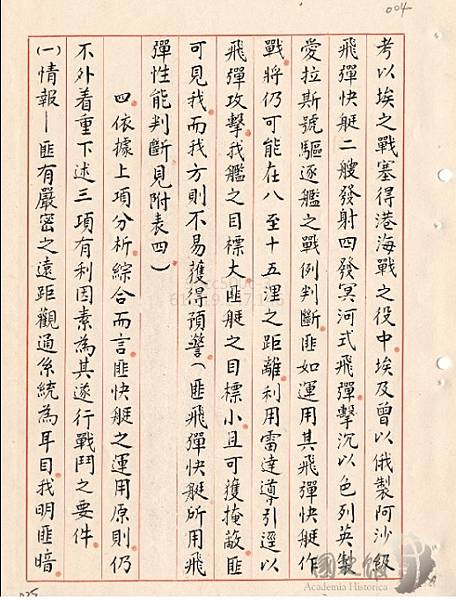 004
考以埃之戰塞得港海戰之役中埃及曾以俄製阿沙級
飛彈快艇二艘發射四發冥河式飛彈擊沉以色列英製
愛拉斯號驅逐艦之戰例判斷匪如運用其飛彈快艇作
戰將仍可能在八至十五浬之距離利用雷達導引逕以
飛彈攻擊我艦之目標大匪艇之目標小且可獲掩蔽匪
可見我而我方則不易獲得預警（匪飛彈快艇所用飛
彈性能判斷見附表四）
四依據上項分析綜合而言匪快艇之運用原則仍
不外着重下述三項有利因素為其遂行戰鬥之要件
㈠情報—匪有嚴密之遠距觀通系統為耳目我明匪暗
國史館
Academia Historica